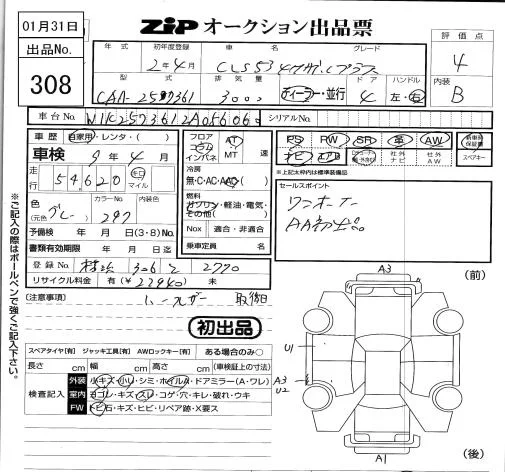 01月31日
出品No.
308
ZiPオークション出品票
評価点
4
内装
B
年式 初年度登録 車名 グレード
2年4月 CLS53 4マチックプラス
型式 排気量 ドア ハンドル
CAA-257361 3000 ディーラー・並行 4 左・右
車台No. W1K2573612A056060 シリアルNo.
車歴 自家用・レンタ・( )
車検 9年4月
走行 54,620 キロ マイル
色 (元色 グレー) カラーNo. 297 内装色
予備検 年 月 日(3・8)No.
書類有効期限 年 月 日迄
登録No. 306 2770
リサイクル料金 有(¥22940) 未
フロア コラム インパネ AT MT 速
冷房 無・C・AC・AAC( )
燃料 ガソリン・軽油・電気・その他( )
Nox 適合・非適合
乗車定員 名
PS PW SR 革 AW 新車時保証書
ナビ エアB 社外ナビ 社外AW スペアキー
※上記太枠内は標準装備品
セールスポイント
ワンオーナー
AA初出品
(注意事項)
取説
初出品
スペアタイヤ[有] ジャッキ工具[有] AWロックキー[有] ある場合のみ○
長さ cm 幅 cm 高さ cm (車検証上の寸法)
検査記入
外装 小キズ・小凹・シミ・ホイルA・ドアミラー(A・ワレ)
室内 ヨゴレ・キズ・スレ・コゲ・穴・キレ・破れ・ウキ
FW トビ石・キズ・ヒビ・リペア跡・X要ス
※ご記入の際はボールペンで強くご記入下さい。
A3
(前)
U1
A3
U2
A1
(後)